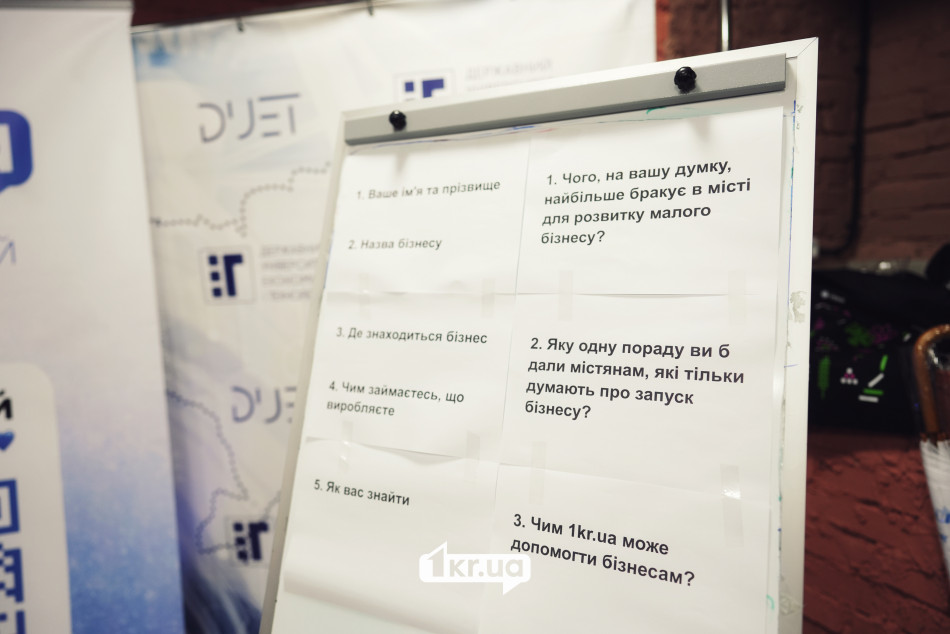 DUET
ДЕРЖАВНИЙ
1. Ваше ім'я та прізвище
2. Назва бізнесу
3. Де знаходиться бізнес
4. Чим займаєтесь, що
виробляєте
5. Як вас знайти
1. Чого, на вашу думку,
найбільше бракує в місті
для розвитку малого
бізнесу?
2. Яку одну пораду ви б
дали містянам, які тільки
думають про запуск
бізнесу?
3. Чим 1kr.ua може
допомогти бізнесам?
1kr.ua